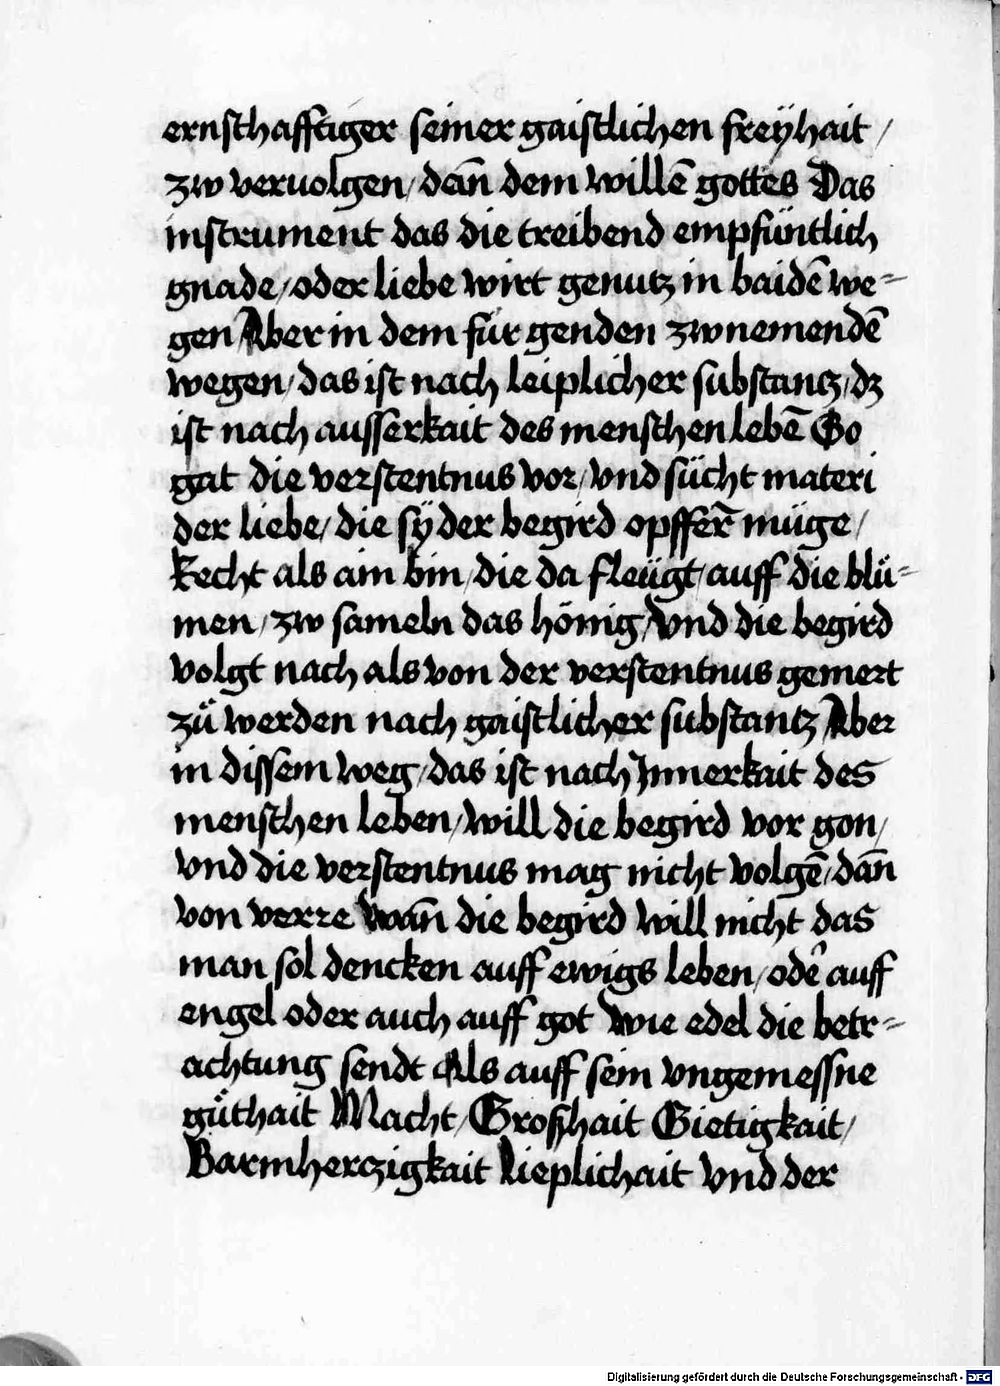 ernschafftiger seiner gaistlichen freÿhait /
zw veruolgen / dan̄ dem willē gottes Das
instrument das die treibend empfüntlich
gnade / oder liebe wirt genutz in baidē we=
gen Aber in dem für genden zwnemendē
wegen / das ist nach leiplicher substantz / dz
ist nach ausserkait des menschen lebē So
gat die verstentnus vor / vnd sücht materi
der liebe / die sÿ der begird opffer̄ müge /
Recht als ain bin / die da fleügt / auff die blü=
men / zw sameln das hönig / Vnd die begird
volgt nach als von der verstentnus gemert
zů werden nach gaistlicher substantz Aber
in dissem weg / das ist nach Jnnerkait des
menschen leben / will die begird vor gon /
vnd die verstentnus mag nicht volgē / dan̄
von verre Wan̄ die begird will nicht das
man sol dencken auff ewigs leben / odẽ auff
engel oder auch auff got Wie edel die betr=
achtung sendt Als auff sein vngemessne
gůthait Macht / Großhait Gietigkait /
Barmherczigkait Lieplichait Vnd der
Digitalisierung gefördert durch die Deutsche Forschungsgemeinschaft - DFG